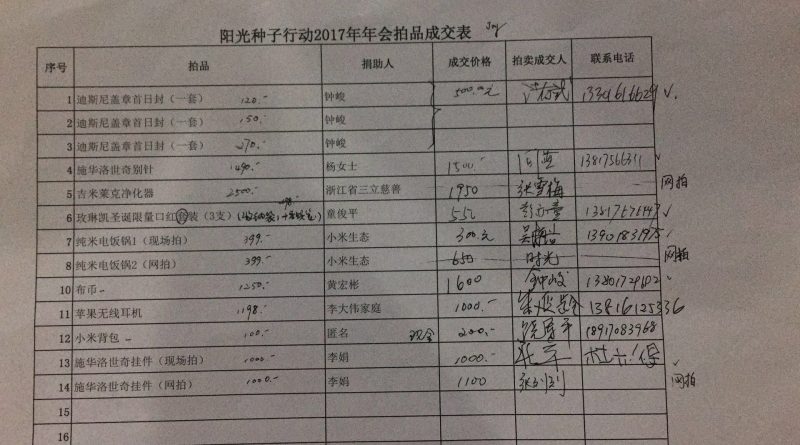 阳光种子行动2017年年会拍品成交表 Joy
序号 拍品 捐助人 成交价格 拍卖成交人 联系电话
1 迪斯尼盖章首日封（一套） 120.- 钟峻 500.00元
2 迪斯尼盖章首日封（一套） 150.- 钟峻
3 迪斯尼盖章首日封（一套） 270.- 钟峻
4 施华洛世奇别针 1490.- 杨女士 1500.- 13817566311
5 吉米莱克净化器 2500.- 浙江省三立慈善 1950 张雪梅 网拍
6 玫琳凯圣诞限量口红套装（3支） 童俊平 550
7 纯米电饭锅1（现场拍） 399.- 小米生态 300.元 13901831975
8 纯米电饭锅2（网拍） 399.- 小米生态 650 时光 网拍
10 布币 1250.- 黄宏彬 1600 钟峻
11 苹果无线耳机 1198.- 李大伟家庭 1000.- 13816125336
12 小米背包 100.- 匿名 现金 200.- 18917083968
13 施华洛世奇挂件（现场拍） 1000.- 李娟 1000.-
14 施华洛世奇挂件（网拍） 1000.- 李娟 1100 网拍
15
16